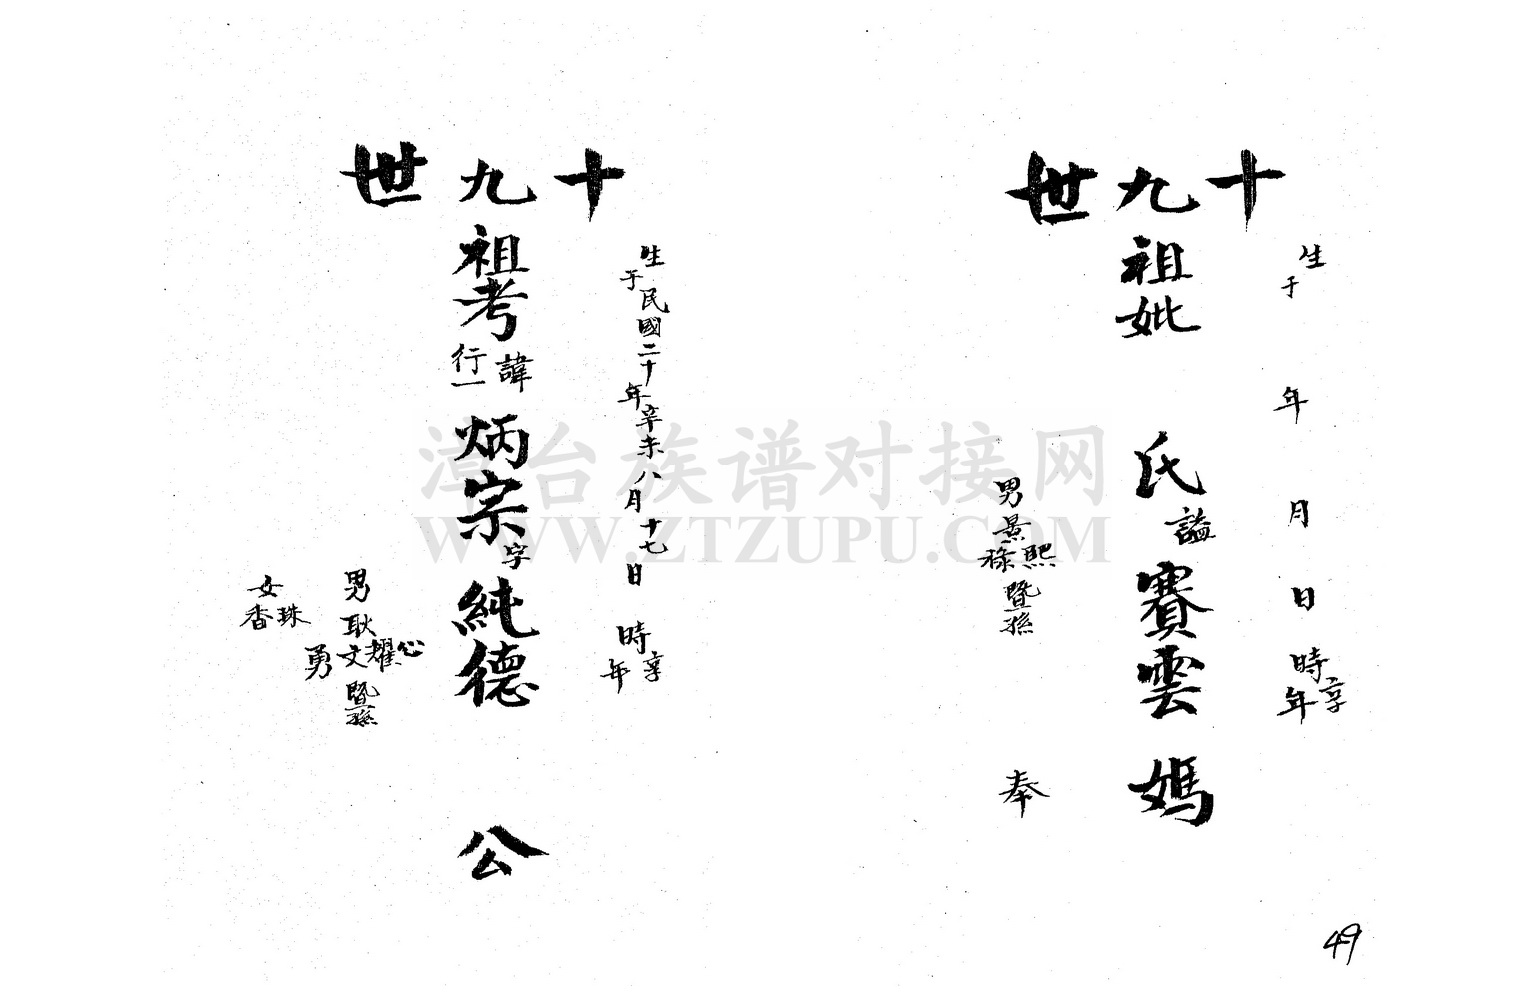 十九世
生于 年 月 日 時享年
祖妣 氏諡賽雲媽
男景熙祿暨孫 奉
十九世
生于民國二十年辛未八月十七日 時享年
祖考諱行一炳宗字純德 公
男耿心耀文勇暨孫
女珠香
49
漳台族谱对接网
WWW.ZTZUPU.COM